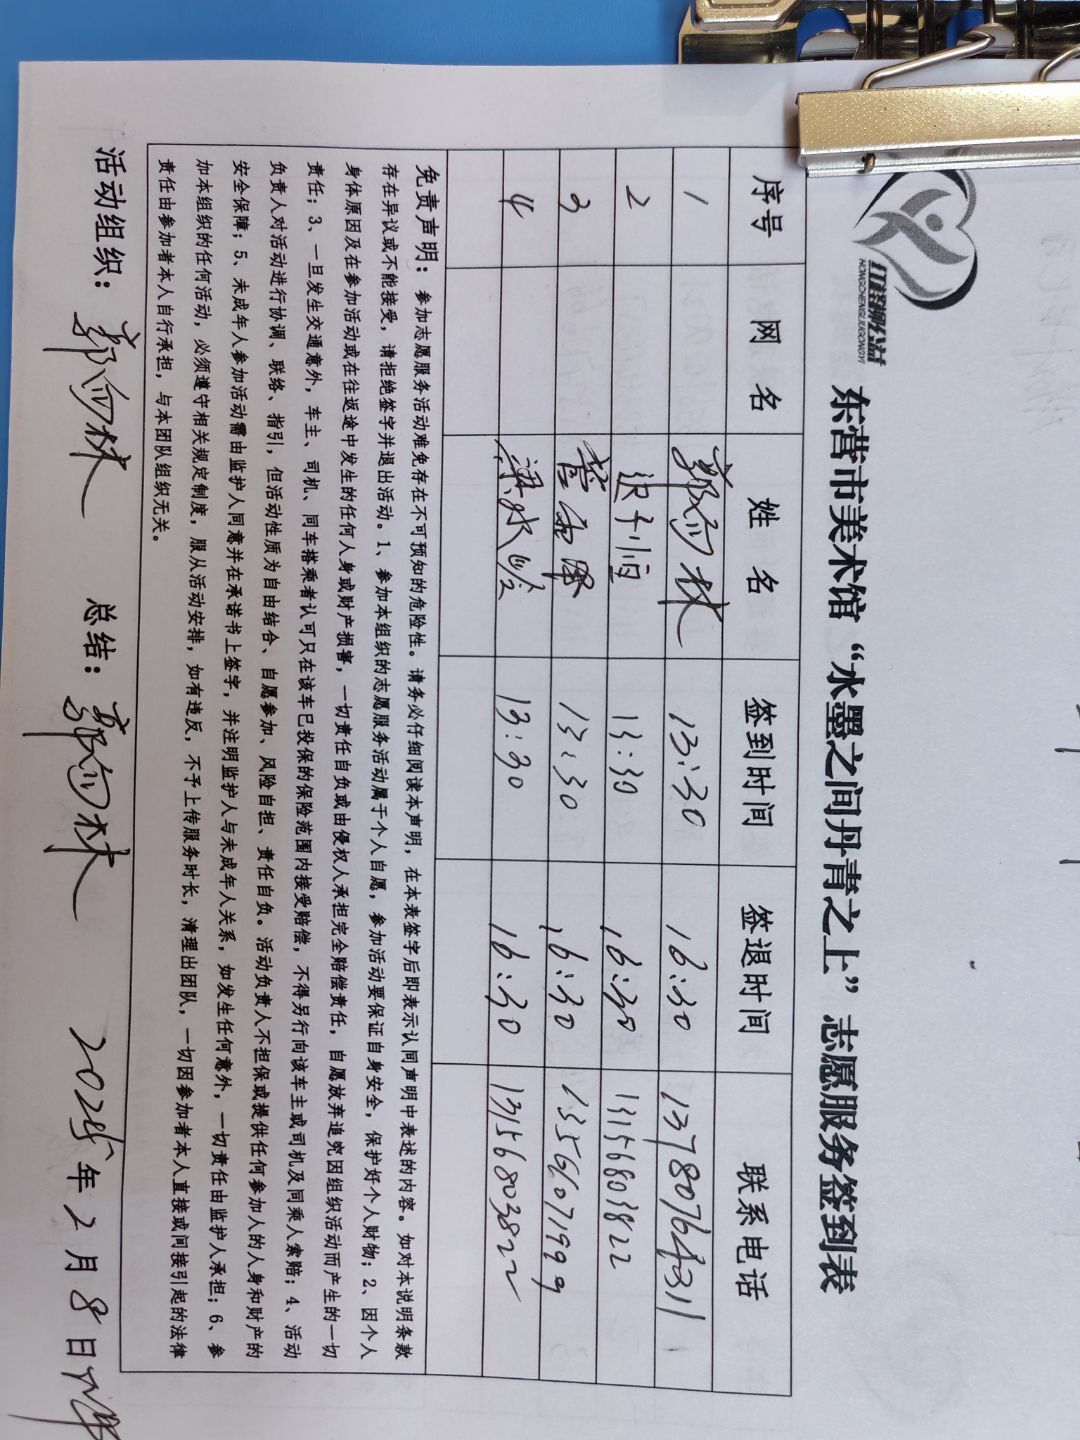 红橙柳公益
HONGCHENGLIUGONGYI
东营市美术馆“水墨之间丹青之上”志愿服务签到表
序号 网名 姓名 签到时间 签退时间 联系电话
1 13:30 16:30 13780764311
2 13:30 16:30 13156803822
3 13:30 16:30 13561071999
4 13:30 16:30 13156803822
免责声明：参加志愿服务活动难免存在不可预知的危险性。请务必仔细阅读本声明，在本表签字后即表示认同声明中表述的内容。如对本说明条款
存在异议或不能接受，请拒绝签字并退出活动。1、参加本组织的志愿服务活动属于个人自愿，参加活动要保证自身安全，保护好个人财物；2、因个人
身体原因及在参加活动或在往返途中发生的任何人身或财产损害，一切责任自负或由侵权人承担完全赔偿责任，自愿放弃追究因组织活动而产生的一切
责任；3、一旦发生交通意外，车主、司机、同车搭乘者认可只在该车已投保的保险范围内接受赔偿，不得另行向该车主或司机及同乘人索赔；4、活动
负责人对活动进行协调、联络、指引，但活动性质为自由结合、自愿参加、风险自担、责任自负。活动负责人不担保或提供任何参加人的人身和财产的
安全保障；5、未成年人参加活动需由监护人同意并在承诺书上签字，并注明监护人与未成年人关系，如发生任何意外，一切责任由监护人承担；6、参
加本组织的任何活动，必须遵守相关规定制度，服从活动安排，如有违反，不予上传服务时长，清理出团队，一切因参加者本人直接或间接引起的法律
责任由参加者本人自行承担，与本团队组织无关。
活动组织： 总结： 2025年2月8日